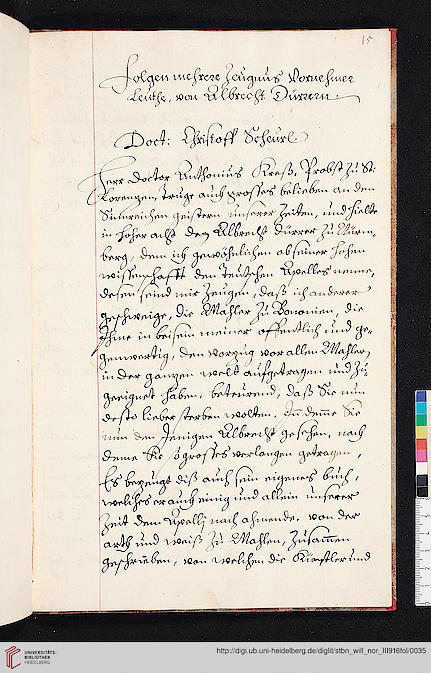 15
Folgen mehrere Zeugnus Vornehmer
Leuthe, von Albrecht Dürrern.
Doct: Christoff Scheurl.
Herr Doctor Anthonius Kreß, Probst zu St:
Lorenzen, truge auch grosses belieben an den
Sinnreichen geistern unserer Zeiten, und hielte
in hoher acht den Albrecht Dürrer zu Nürm,,
berg, dem ich gewöhnlichen ob seiner hohen
wissenschafft den Teutschen Apelles nenne,
dessen seind mir Zeugen, daß ich anderer
geschweige, die Mahler zu Bononien, die
Ihme in beisein meiner offentlich und ge-
genwertig, den vorzug vor allen Mahlern
in der ganzen welt aufgetragen und zu-
geeignet haben, beteurend, daß Sie nun
desto lieber sterben wolten, Sie
nun den Jenigen Albrecht gesehen, nach
deme Sie so grosses verlangen getragen,
Es bezeugt diß auch sein eigenes buch,
welches er auch einig und allein unserer
Zeit dem Apelli nach ahmende, von der
arth und weiß zu Mahlen, zusam̅en
geschrieben, von welchem die Künstler und
UNIVERSITÄTS-
BIBLIOTHEK
HEIDELBERG
http://digi.ub.uni-heidelberg.de/diglit/stbn_will_nor_III916fol/0035